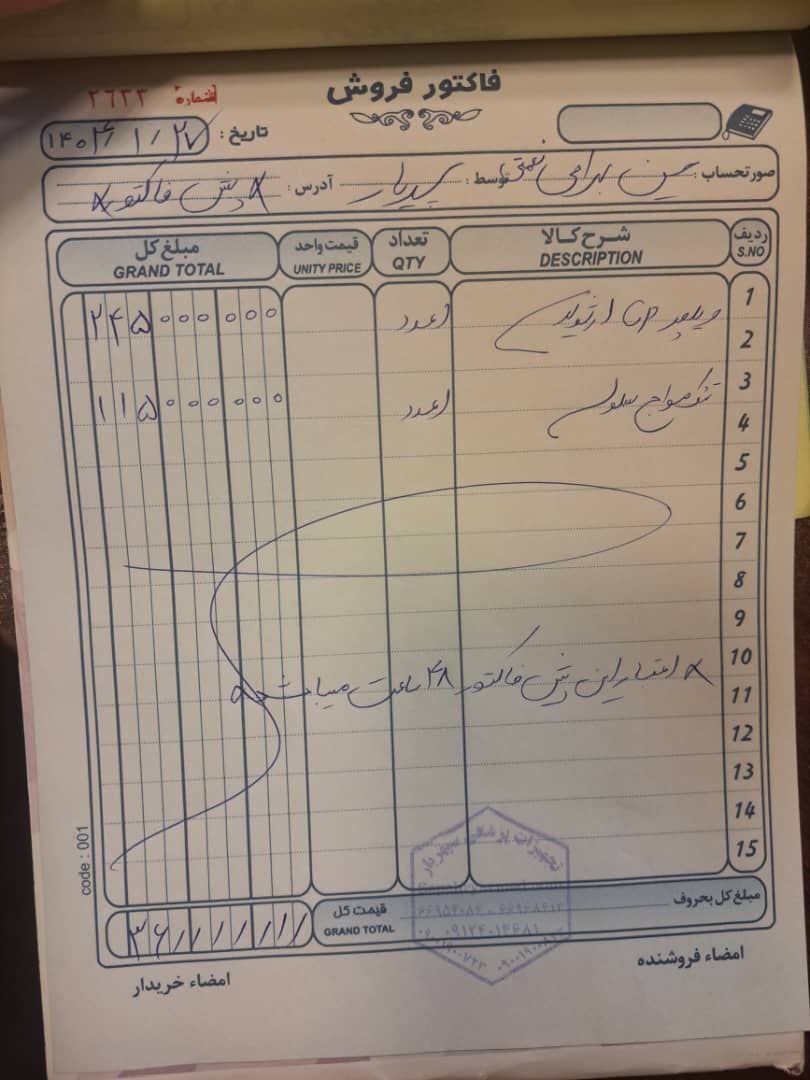 فاکتور فروش
شماره: ۲۶۲۲
تاریخ: ۱۴۰۴/۱/۲۷
صورتحساب: حسن بهرامی نعمتی توسط: سپهریار آدرس: * پیش فاکتور *
ردیف S.NO شرح کالا DESCRIPTION تعداد QTY قیمت واحد UNITY PRICE مبلغ کل GRAND TOTAL
1
ویلچر ۱ عدد ۲۴۵۰۰۰۰۰۰
2
3
تشک مواج سلولی ۱ عدد ۱۱۵۰۰۰۰۰۰
4
5
6
7
8
9
10
* اعتبار این پیش فاکتور ۴۸ ساعت میباشد *
11
12
13
14
15
code : 001
تجهیزات پزشکی سپهریار
مبلغ کل بحروف
قیمت کل GRAND TOTAL
امضاء فروشنده
امضاء خریدار